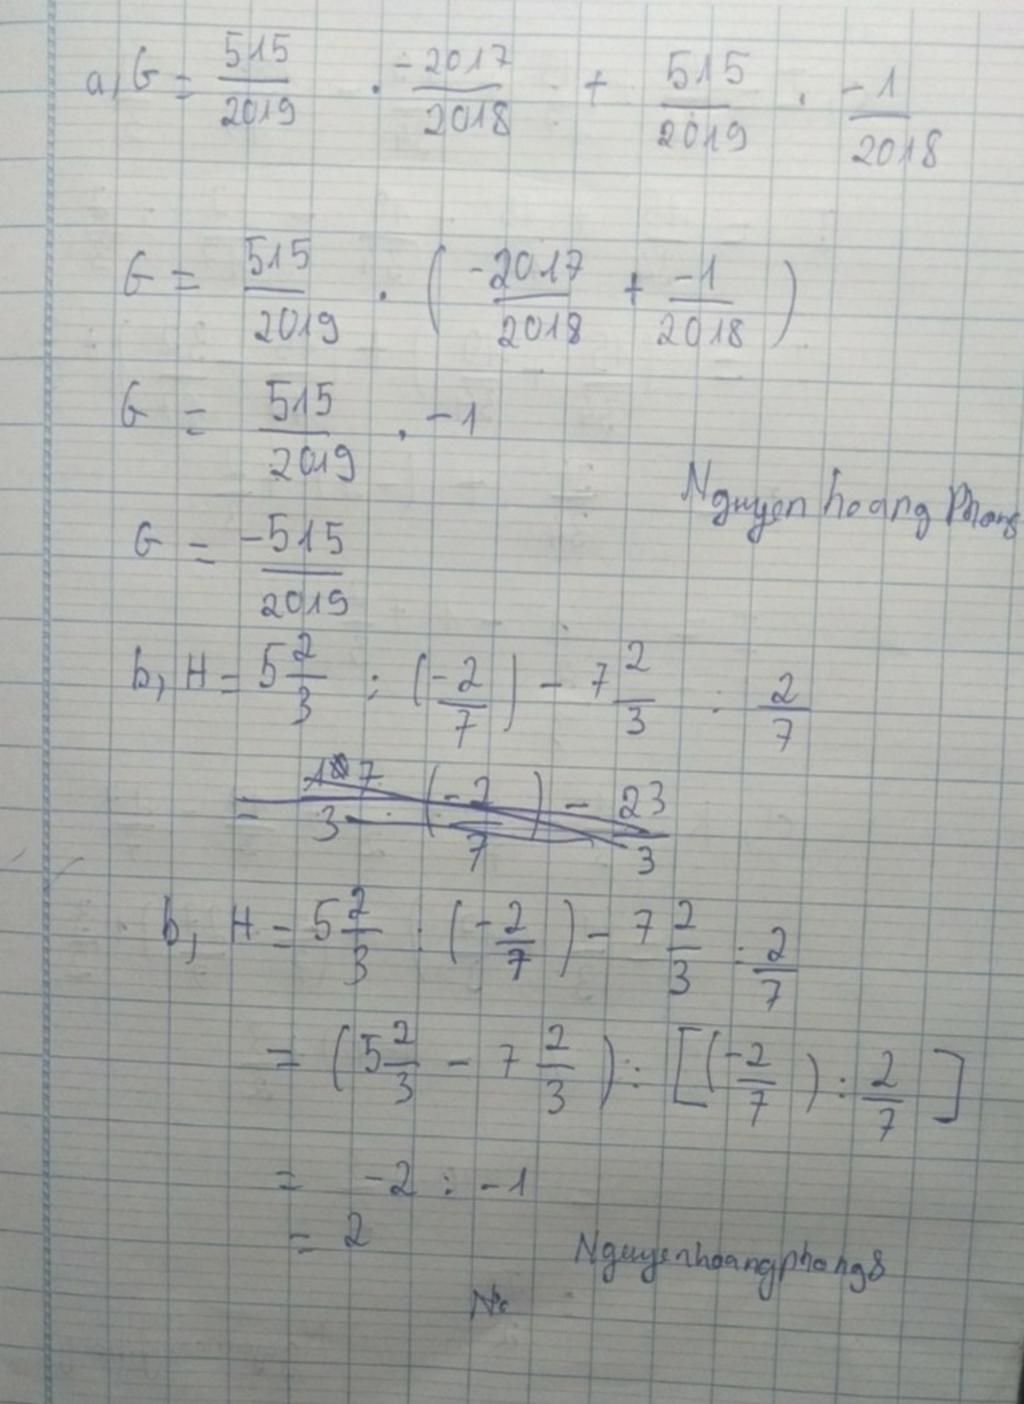 a, G = 515/2019 . -2017/2018 + 515/2019 . -1/2018
G = 515/2019 . ( -2017/2018 + -1/2018 )
G = 515/2019 . -1
Nguyen hoang Phong
G = -515/2019
b, H = 5 2/3 : (-2/7) - 7 2/3 : 2/7
= 17/3 : (-2/7) - 23/3
b, H = 5 2/3 : (-2/7) - 7 2/3 : 2/7
= (5 2/3 - 7 2/3) : [(-2/7) : 2/7]
= -2 : -1
= 2
Nguyenhoangphong8